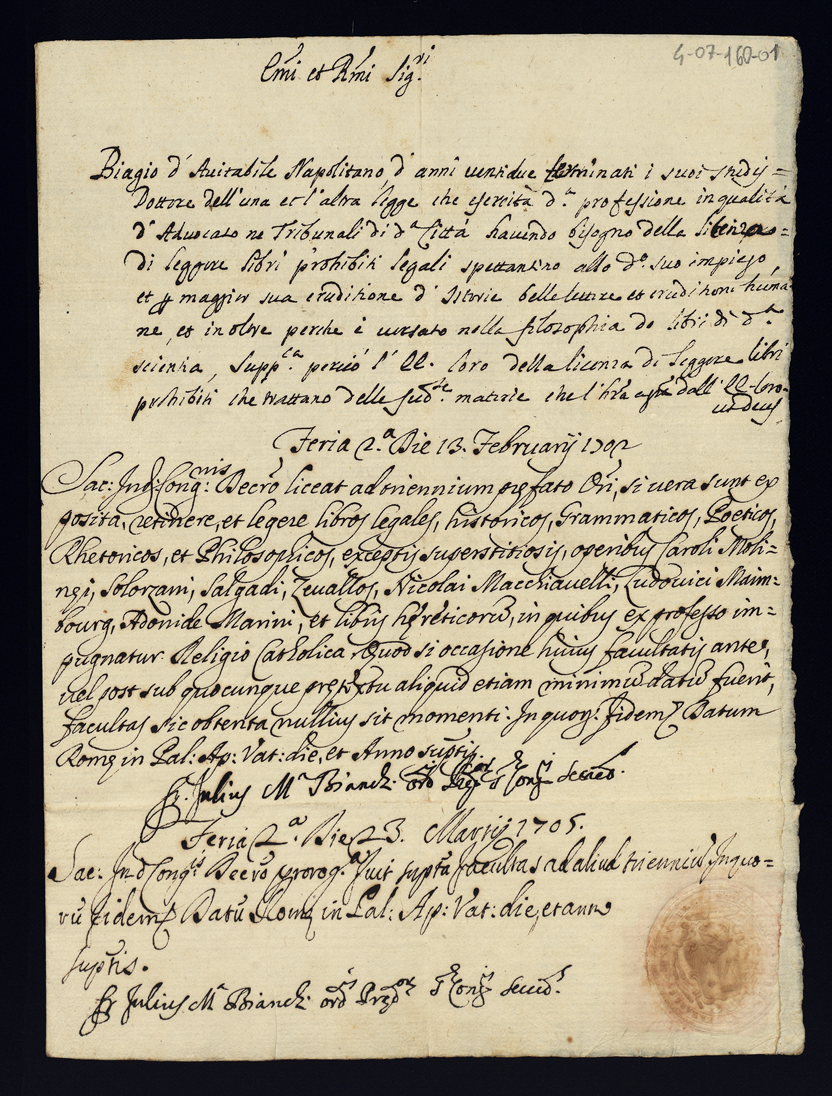 4-07-160-01
Emi et Rmi Sig.ri
Biagio d'Auitabile Napolitano d'anni uentidue terminati i suoi studij =
Dottore dell'una et l'altra legge che esercita d.a professione in qualità
d'Aduocato ne Tribunali di d.a Città hauendo bisogno della licenza =
di leggere libri prohibiti legali spettantino allo d.o suo impiego,
et p maggior sua eruditione d'Istorie belle lettere et eruditioni huma
ne, et in oltre perche è uersato nella filosophia de libri di d.a
scientia, supp.ca perciò l'EE. loro della licenza di leggere libri
prohibiti che trattano delle sud.te materie che l'hrà dall'EE. loro =
ut deus
Feria 2.a Die 13. February 1702
Sac: Ind: Cong:nis Decro liceat ad triennium prefato Ori, si uera sunt ex
posita, retinere, et legere libros legales, historicos, Grammaticos, Poeticos,
Rhetoricos, et Philosophicos, exceptis superstitiosis, operibus Caroli Moli=
nęi, Solorzani, Salgadi, Zeuallos, Nicolai Macchiauelli, Ludouici Maim=
bourg, Adonide Marini, et libris hęreticorū, in quibus ex professo im=
pugnatur Religio Catholica. Quod si occasione huius facultatis ante,
uel post sub quocunque prętextu aliquid etiam minimū datū fuerit,
facultas sic obtenta nullius sit momenti. In quor. fidem Datum
Romę in Pal: Ap: Vat: die, et Anno suptis.
Fr. Julius M.a Bianchi ord. Pręd.or s. Cong.is Secret.s
Feria 2.a Die 23. Martij 1705.
Sac: Ind Cong.s Decro prorog.a fuit supta facultas ad aliud trienniū. In quo=
rū fidem Datū Romę in Pal: Ap: Vat: die, et anno
suptis.
Fr Julius M.a Bianchi ord.is Pręd.or s. Cong.is Secret.s